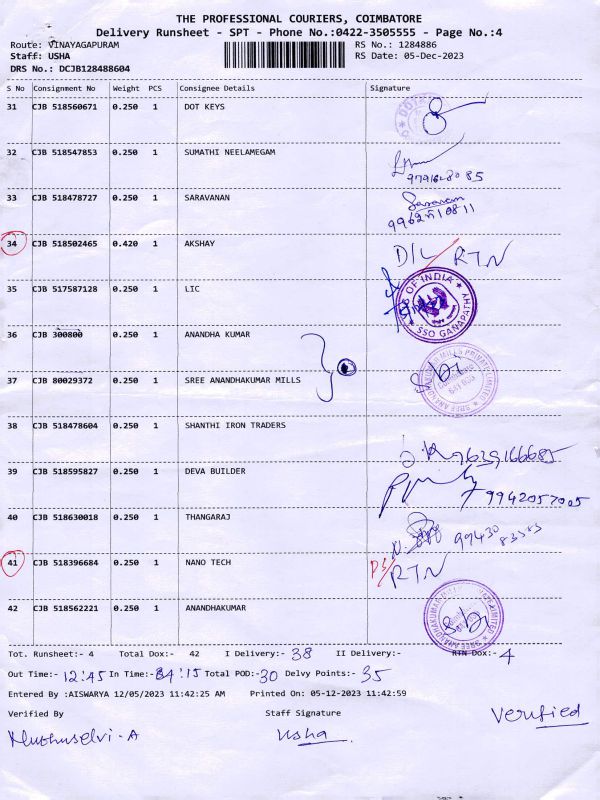 THE PROFESSIONAL COURIERS, COIMBATORE
Delivery Runsheet - SPT - Phone No.:0422-3505555 - Page No.:4
Route: VINAYAGAPURAM RS No.: 1284886
Staff: USHA RS Date: 05-Dec-2023
DRS No.: DCJB128488604
S No Consignment No Weight PCS Consignee Details Signature
31 CJB 518560671 0.250 1 DOT KEYS
32 CJB 518547853 0.250 1 SUMATHI NEELAMEGAM
33 CJB 518478727 0.250 1 SARAVANAN
34 CJB 518502465 0.420 1 AKSHAY D/L RTN
35 CJB 517587128 0.250 1 LIC OF INDIA SSO GANAPATHY
36 CJB 300800 0.250 1 ANANDHA KUMAR
37 CJB 80029372 0.250 1 SREE ANANDHAKUMAR MILLS
38 CJB 518478604 0.250 1 SHANTHI IRON TRADERS
9629166685
39 CJB 518595827 0.250 1 DEVA BUILDER
9942057005
40 CJB 518630018 0.250 1 THANGARAJ
41 CJB 518396684 0.250 1 NANO TECH RTN
42 CJB 518562221 0.250 1 ANANDHAKUMAR
Tot. Runsheet:- 4 Total Dox:- 42 I Delivery:- 38 II Delivery:- RTN Dox:- 4
Out Time:- 12:45 In Time:- 04:15 Total POD:- 30 Delvy Points:- 35
Entered By :AISWARYA 12/05/2023 11:42:25 AM Printed On: 05-12-2023 11:42:59
Verified By Staff Signature Verified
Muthuselvi - A Usha